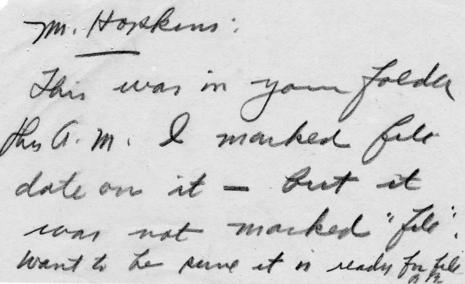 M. Hopkins:
This was in your folder
this A.M. I marked file
date on it — but it
was not marked "file".
Want to be sure it is ready for file